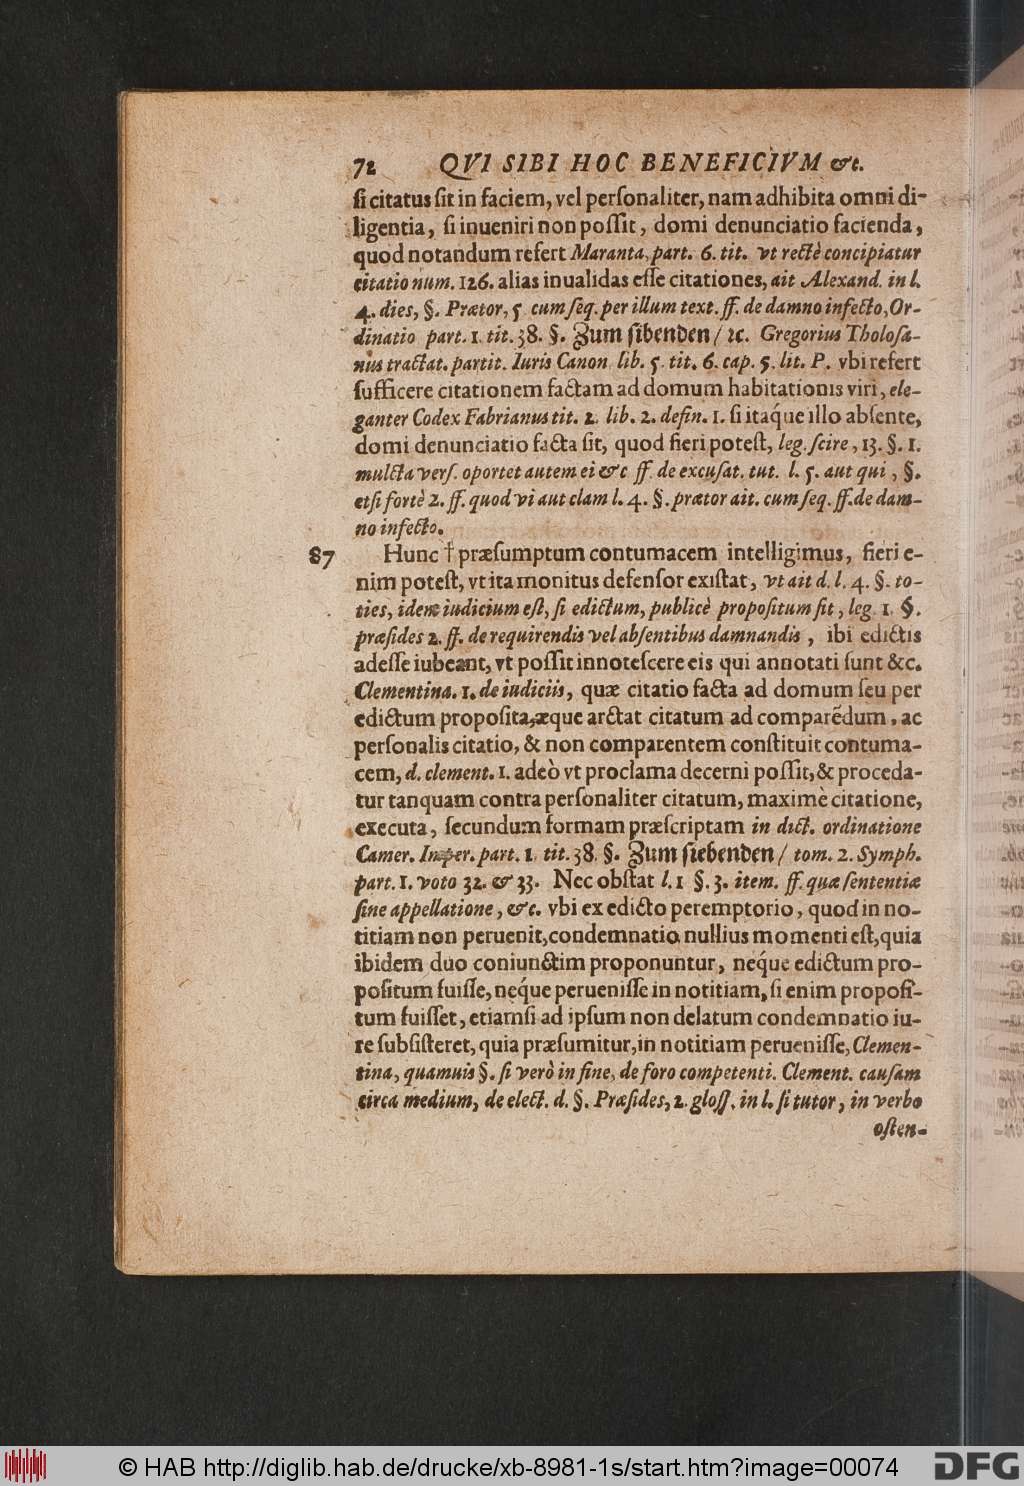 72 QVI SIBI HOC BENEFICIVM &c.
ſi citatus ſit in faciem, vel perſonaliter, nam adhibita omni di-
ligentia, ſi inueniri non poſſit, domi denunciatio facienda,
quod notandum refert Maranta, part. 6. tit. vt rectè concipiatur
citatio num. 126. alias inualidas eſſe citationes, ait Alexand. in l.
4. dies, §. Prætor, 5 cum ſeq. per illum text. ff. de damno infecto, Or-
dinatio part. 1. tit. 38. §. Zum ſibenden / ꝛc. Gregorius Tholoſa-
nus tractat. partit. Iuris Canon lib. 5. tit. 6. cap. 5. lit. P. vbi refert
ſufficere citationem factam ad domum habitationis viri, ele-
ganter Codex Fabrianus tit. 2. lib. 2. defin. 1. ſi itaq́ue illo abſente,
domi denunciatio facta ſit, quod fieri poteſt, leg. ſcire, 13. §. 1.
mulcta verſ. oportet autem ei &c ff. de excuſat. tut. l. 5. aut qui, §.
etſi fortè 2. ff. quod vi aut clam l. 4. §. prætor ait. cum ſeq. ff. de dam-
no infecto.
87 Hunc † præſumptum contumacem intelligimus, fieri e-
nim poteſt, vt ita monitus defenſor exiſtat, vt ait d. l. 4. §. to-
ties, idem iudicium eſt, ſi edictum, publicè propoſitum ſit, leg. 1. §.
præſides 2. ff. de requirendis vel abſentibus damnandis, ibi edictis
adeſſe iubeant, vt poſſit innoteſcere eis qui annotati ſunt &c.
Clementina. 1. de iudiciis, quæ citatio facta ad domum ſeu per
edictum propoſita, æque arctat citatum ad comparẽdum, ac
perſonalis citatio, & non comparentem conſtituit contuma-
cem, d. clement. 1. adeò vt proclama decerni poſſit, & proceda-
tur tanquam contra perſonaliter citatum, maximè citatione,
executa, ſecundum formam præſcriptam in dict. ordinatione
Camer. Imper. part. 1. tit. 38. §. Zum ſiebenden / tom. 2. Symph.
part. 1. voto 32. & 33. Nec obſtat l. 1 §. 3. item. ff. quæ ſententiæ
ſine appellatione, &c. vbi ex edicto peremptorio, quod in no-
titiam non peruenit, condemnatio nullius momenti eſt, quia
ibidem duo coniunctim proponuntur, neq́ue edictum pro-
poſitum fuiſſe, neq́ue perueniſſe in notitiam, ſi enim propoſi-
tum fuiſſet, etiamſi ad ipſum non delatum condemnatio iu-
re ſubſiſteret, quia præſumitur, in notitiam perueniſſe, Clemen-
tina, quamuis §. ſi verò in fine, de foro competenti. Clement. cauſam
circa medium, de elect. d. §. Præſides, 2. gloſſ. in l. ſi tutor, in verbo
oſten-
© HAB http://diglib.hab.de/drucke/xb-8981-1s/start.htm?image=00074
DFG